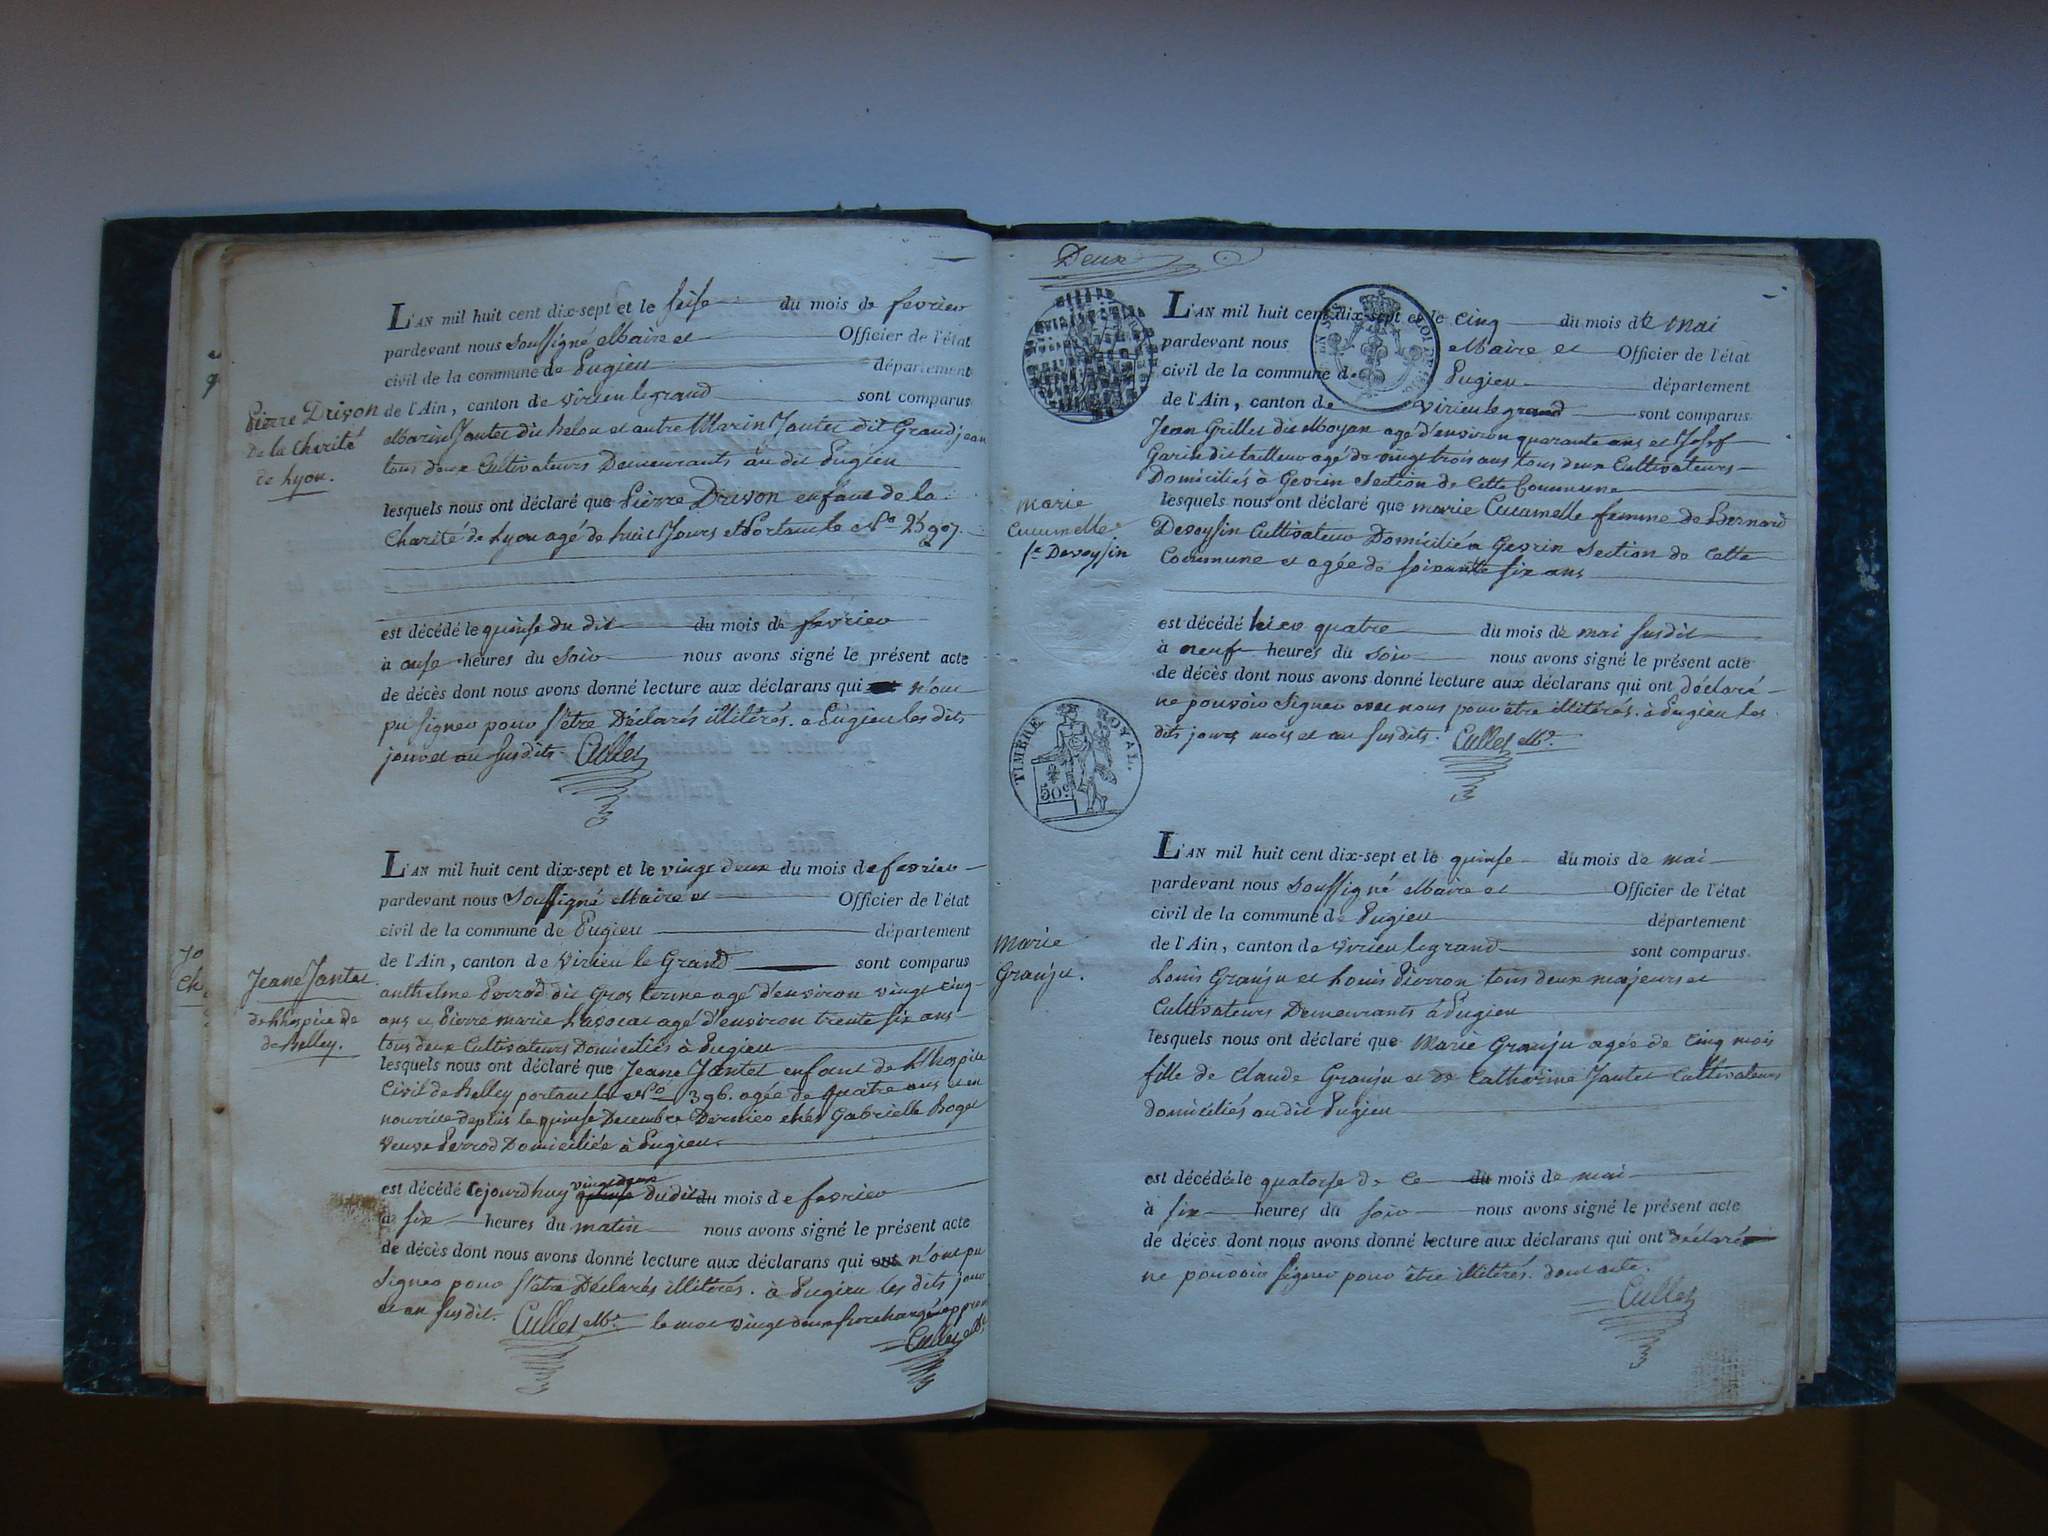 Pierre Drivon
de la Charité
de Lyon.
L'AN mil huit cent dix-sept et le seise du mois de fevrier
pardevant nous soussigné Maire et Officier de l'état
civil de la commune de Pugieu département
de l'Ain, canton de virieu le grand sont comparus
Marin Jantet dit Belou et autre Marin Jantet dit Grandjean
tous deux Cultivateurs Demeurants au dit Pugieu
lesquels nous ont déclaré que Pierre Drivon enfant de la
Charité de Lyon agé de huit Jours et Portant le No 25907.
est décédé le quinse du dit du mois de fevrier
à onse heures du soir nous avons signé le présent acte
de décès dont nous avons donné lecture aux déclarans qui n'ont
pu signer pour s'être Déclarés illitérés. a Pugieu les dits
jour et an susdits. Cullet
Jeane Jantet
de Lhospice de
de Belley.
L'AN mil huit cent dix-sept et le vingt deux du mois de fevrier
pardevant nous Soussigné Maire et Officier de l'état
civil de la commune de Pugieu département
de l'Ain, canton de Virieu le Grand sont comparus
anthelme Perrod dit Gros agé d'environ vingt cinq
ans et Pierre marie Lavocat agé d'environ trente six ans
tous deux Cultivateurs Domiciliés à Pugieu
lesquels nous ont déclaré que Jeane Jantet enfant de L'hospice
Civil de Belley portant le No 396. agée de quatre ans et en
nourrice depuis le quinse Decembre Dernier chés Gabrielle Roget
veuve Perrod Domiciliée à Pugieu.
vingt deux
est décédé cejourdhuy quinse dudit du mois de fevrier
à six heures du matin nous avons signé le présent acte
de décès dont nous avons donné lecture aux déclarans qui ont n'ont pu
signer pour s'être Déclarés illitérés. à Pugieu les dits jour
et an susdit. Cullet Mre le mot vingt deux surchargé approuvé
Cullet Mre
70
Ch
Deux
L'AN mil huit cent dix-sept et le cinq du mois de mai
pardevant nous Maire et Officier de l'état
civil de la commune de Pugieu département
de l'Ain, canton de virieu le grand sont comparus
Jean Grillet dit Moyan agé d'environ quarante ans et Josef
Garin dit tailleur agé de vingt trois ans tous deux Cultivateurs
Domiciliés à Gevrin Section de Cette Commune
marie
Cucumelle
fe Devoysin
lesquels nous ont déclaré que marie Cucumelle femme de Bernard
Devoysin Cultivateur Domicilié a Gevrin Section de Cette
Commune et agée de soixante six ans
est décédé hier quatre du mois de mai susdit
à neuf heures du soir nous avons signé le présent acte
de décès dont nous avons donné lecture aux déclarans qui ont déclaré
ne pouvoir signer avec nous pour être illitérés. à Pugieu les
dits jours mois et an susdits. Cullet Mre
TIMBRE ROYAL.
50c
L'AN mil huit cent dix-sept et le quinse du mois de mai
pardevant nous soussigné Maire et Officier de l'état
civil de la commune de Pugieu département
de l'Ain, canton de virieu le grand sont comparus
marie
Granju.
Louis Granju et Louis Pierron tous deux majeurs et
Cultivateurs Demeurants à Pugieu
lesquels nous ont déclaré que Marie Granju agée de cinq mois
fille de Claude Granju et de Catherine Jantet Cultivateurs
domiciliés au dit Pugieu
est décédée le quatorse de ce du mois de mai
à six heures du soir nous avons signé le présent acte
de décès dont nous avons donné lecture aux déclarans qui ont déclaré
ne pouvoir signer pour être illitérés. dont acte.
Cullet